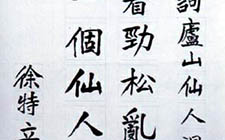 詞廬山仙人洞
看勁松亂
個仙人
徐特立